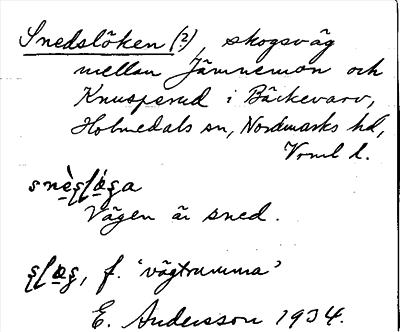 Snedslöken (?), skogsväg
mellan Jämnemon och
Knuserud i Bäckevarv,
Holmedals sn, Nordmarks hd,
Vrml l.
Vägen är sned.
f. 'vägtrumma'
E. Andersson 1934.